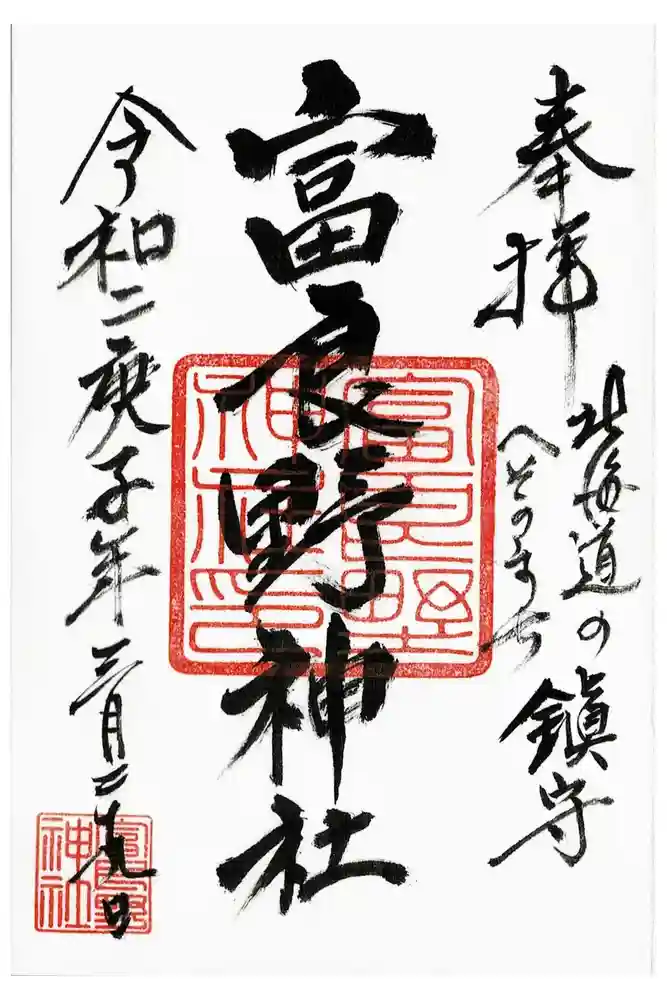 奉拝
北海道の
へそのまち
鎭守
富良野神社
富良野
神社印
令和二庚子年三月二十九日
富良野
神社